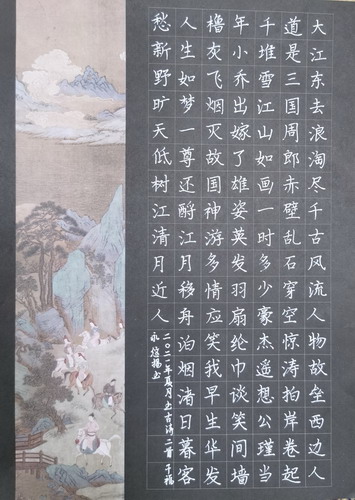 大江东去浪淘尽千古风流人物故垒西边人
道是三国周郎赤壁乱石穿空惊涛拍岸卷起
千堆雪江山如画一时多少豪杰遥想公瑾当
年小乔出嫁了雄姿英发羽扇纶巾谈笑间墙
橹灰飞烟灭故国神游多情应笑我早生华发
人生如梦一尊还酹江月移舟泊烟渚日暮客
愁新野旷天低树江清月近人
二〇二一年夏月书古诗二首